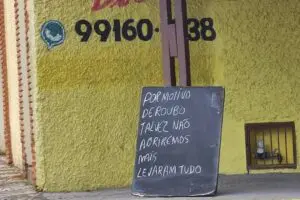 99160-38
POR MOTIVO
DE ROUBO
TALVEZ NÃO
ABRIREMOS
MAIS
LEVARAM TUDO